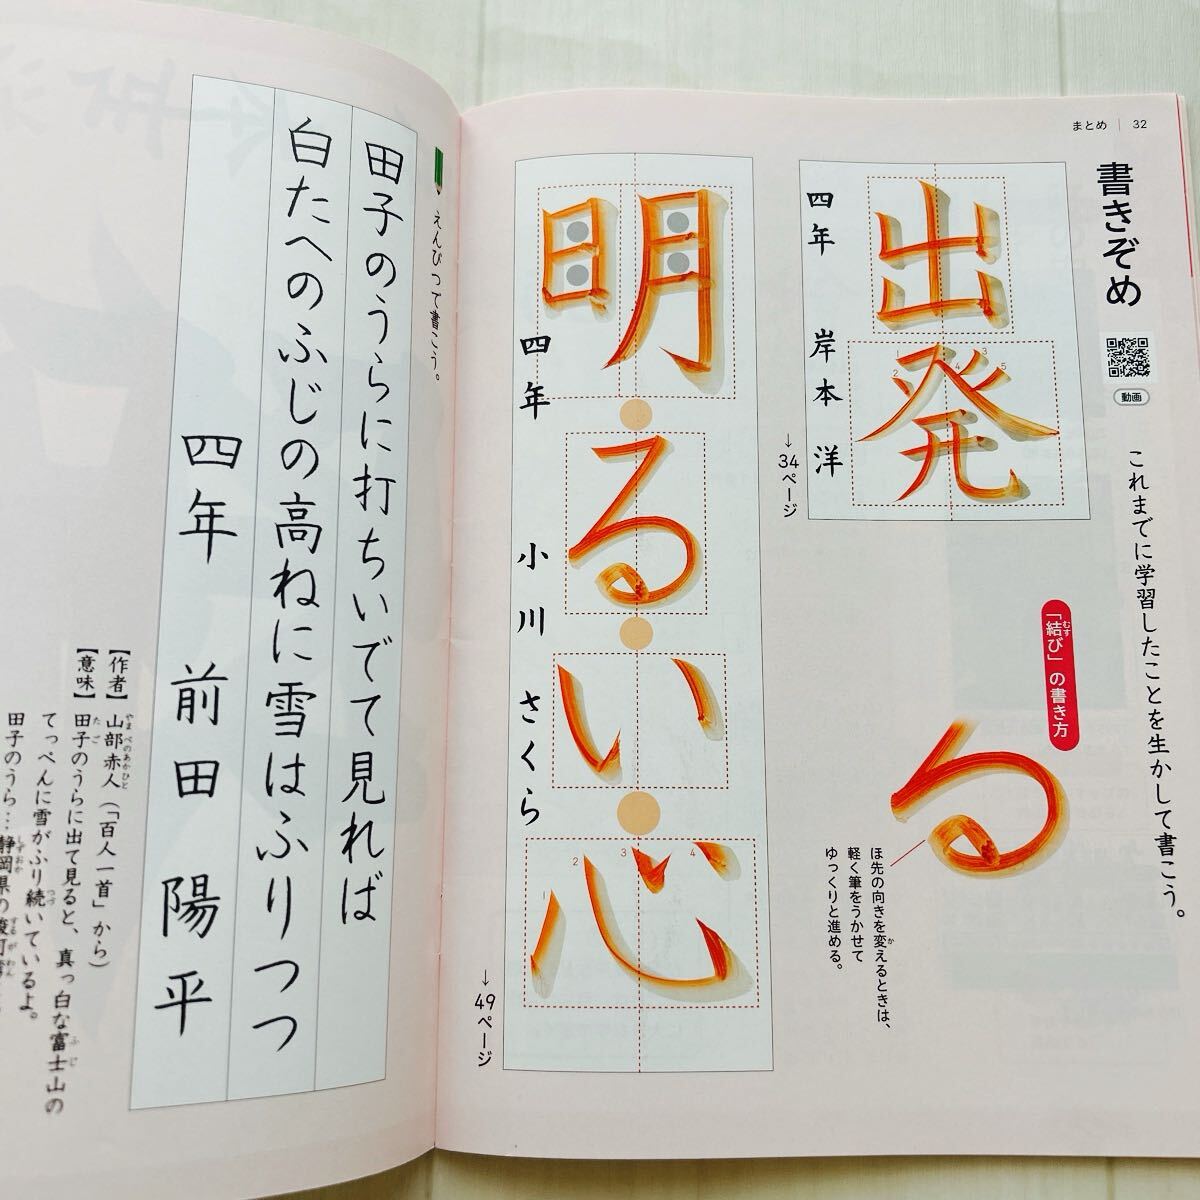 まとめ | 32
書きぞめ
動画
これまでに学習したことを生かして書こう。
出発
四年 岸本 洋
→34ページ
「結び」の書き方
むす
る
ほ先の向きを変えるときは、
か
軽く筆をうかせて
ゆっくりと進める。
明るい心
四年 小川 さくら
→49ページ
えんぴつで書こう。
田子のうらに打ちいでて見れば
白たへのふじの高ねに雪はふりつつ
四年 前田 陽平
【作者】山部赤人(「百人一首」から)
やまべのあかひと
【意味】田子のうらに出て見ると、真っ白な富士山の
たご
ふじ
てっぺんに雪がふり続いているよ。
つづ
田子のうら…静岡県の
しずおか
するがわん